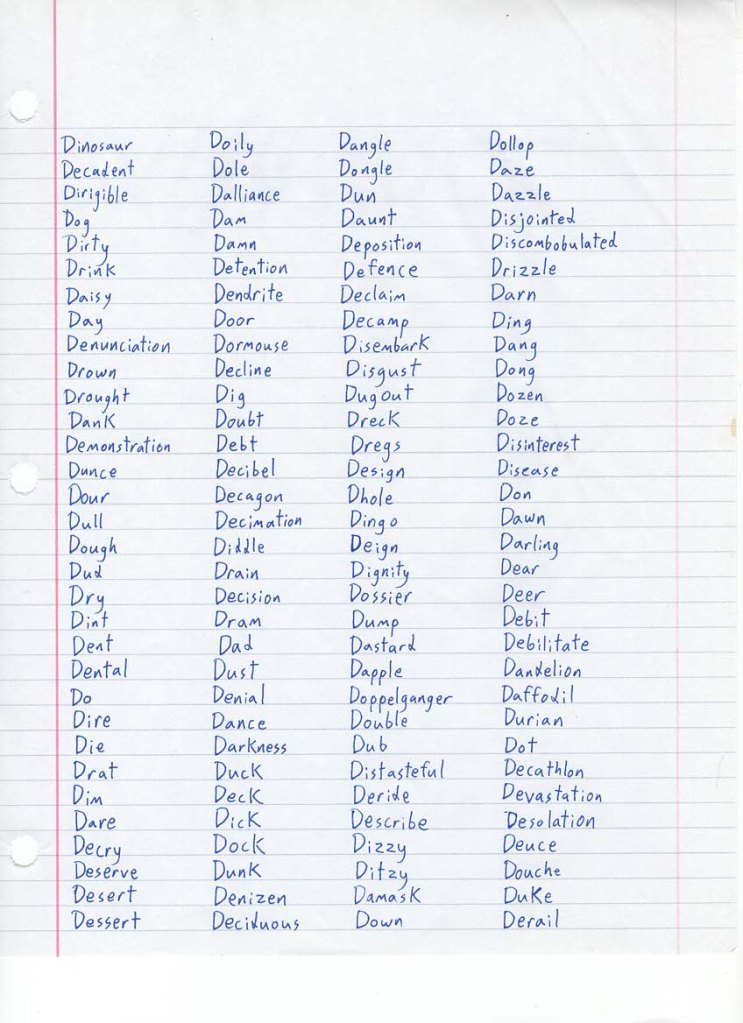 Dinosaur Doily Dangle Dollop
Decadent Dole Dongle Daze
Dirigible Dalliance Dun Dazzle
Dog Dam Daunt Disjointed
Dirty Damn Deposition Discombobulated
Drink Detention Defence Drizzle
Daisy Dendrite Declaim Darn
Day Door Decamp Ding
Denunciation Dormouse Disembark Dang
Drown Decline Disgust Dong
Drought Dig Dugout Dozen
Dank Doubt Dreck Doze
Demonstration Debt Dregs Disinterest
Dunce Decibel Design Disease
Dour Decagon Dhole Don
Dull Decimation Dingo Dawn
Dough Diddle Deign Darling
Dud Drain Dignity Dear
Dry Decision Dossier Deer
Dint Dram Dump Debit
Dent Dad Dastard Debilitate
Dental Dust Dapple Dandelion
Do Denial Doppelganger Daffodil
Dire Dance Double Durian
Die Darkness Dub Dot
Drat Duck Distasteful Decathlon
Dim Deck Deride Devastation
Dare Dick Describe Desolation
Decry Dock Dizzy Deuce
Deserve Dunk Ditzy Douche
Desert Denizen Damask Duke
Dessert Deciduous Down Derail